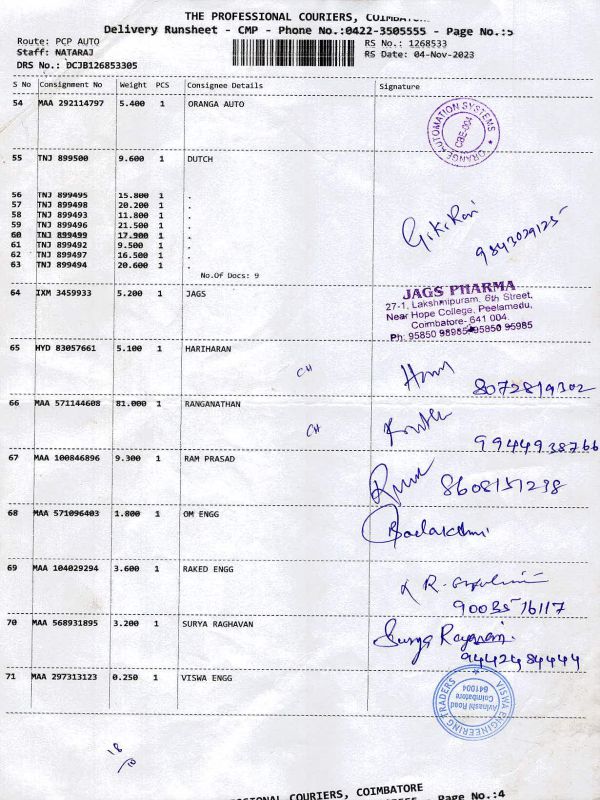 THE PROFESSIONAL COURIERS, COIMBATORE
Delivery Runsheet - CMP - Phone No.:0422-3505555 - Page No.:5
Route: PCP AUTO
RS No.: 1268533
Staff: NATARAJ
RS Date: 04-Nov-2023
DRS No.: DCJB126853305
S No Consignment No Weight PCS Consignee Details Signature
54 MAA 292114797 5.400 1 ORANGA AUTO
ORANGE AUTOMATION SYSTEMS ★ CBE-004
55 TNJ 899500 9.600 1 DUTCH
56 TNJ 899495 15.800 1 .
57 TNJ 899498 20.200 1 .
58 TNJ 899493 11.800 1 .
59 TNJ 899496 21.500 1 .
60 TNJ 899499 17.900 1 .
61 TNJ 899492 9.500 1 .
62 TNJ 899497 16.500 1 .
63 TNJ 899494 20.600 1 .
9843029125
No.Of Docs: 9
64 IXM 3459933 5.200 1 JAGS
JAGS PHARMA
27-1, Lakshmipuram, 6th Street,
Near Hope College, Peelamedu,
Coimbatore- 641 004.
Ph: 95850 98985, 95850 95985
65 HYD 83057661 5.100 1 HARIHARAN
CH
8072819302
66 MAA 571144608 81.000 1 RANGANATHAN
CH
9944938766
67 MAA 100846896 9.300 1 RAM PRASAD
8608151238
68 MAA 571096403 1.800 1 OM ENGG
69 MAA 104029294 3.600 1 RAKED ENGG
9003576117
70 MAA 568931895 3.200 1 SURYA RAGHAVAN
Surya
9442484444
71 MAA 297313123 0.250 1 VISWA ENGG
VISWA ENGINEERING TRADERS ★ Avinashi Road Coimbatore 641004
18/10
PROFESSIONAL COURIERS, COIMBATORE
Page No.:4